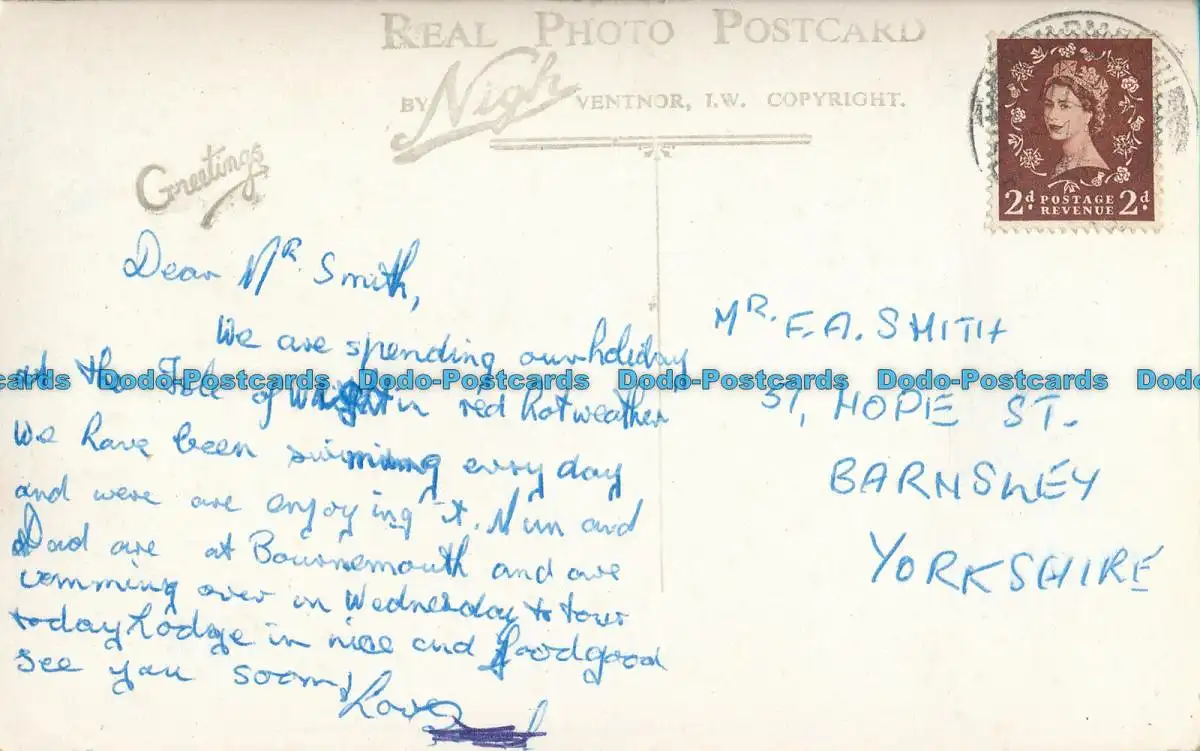 REAL PHOTO POSTCARD
BY Nigh VENTNOR, I.W. COPYRIGHT.
Greetings
2d. POSTAGE REVENUE 2d.
Dear Mr Smith,
We are spending our holiday
at the Isle of Wight in red hot weather
We have been swimming every day
and were are enjoying it. Mum and
Dad are at Bournemouth and are
comming over in Wednesday to tour
today Lodge in nice and food good
see you soon
Love
MR. F.A. SMITH
57, HOPE ST.
BARNSLEY
YORKSHIRE
cards Dodo-Postcards Dodo-Postcards Dodo-Postcards Dodo-Postcards Dodo